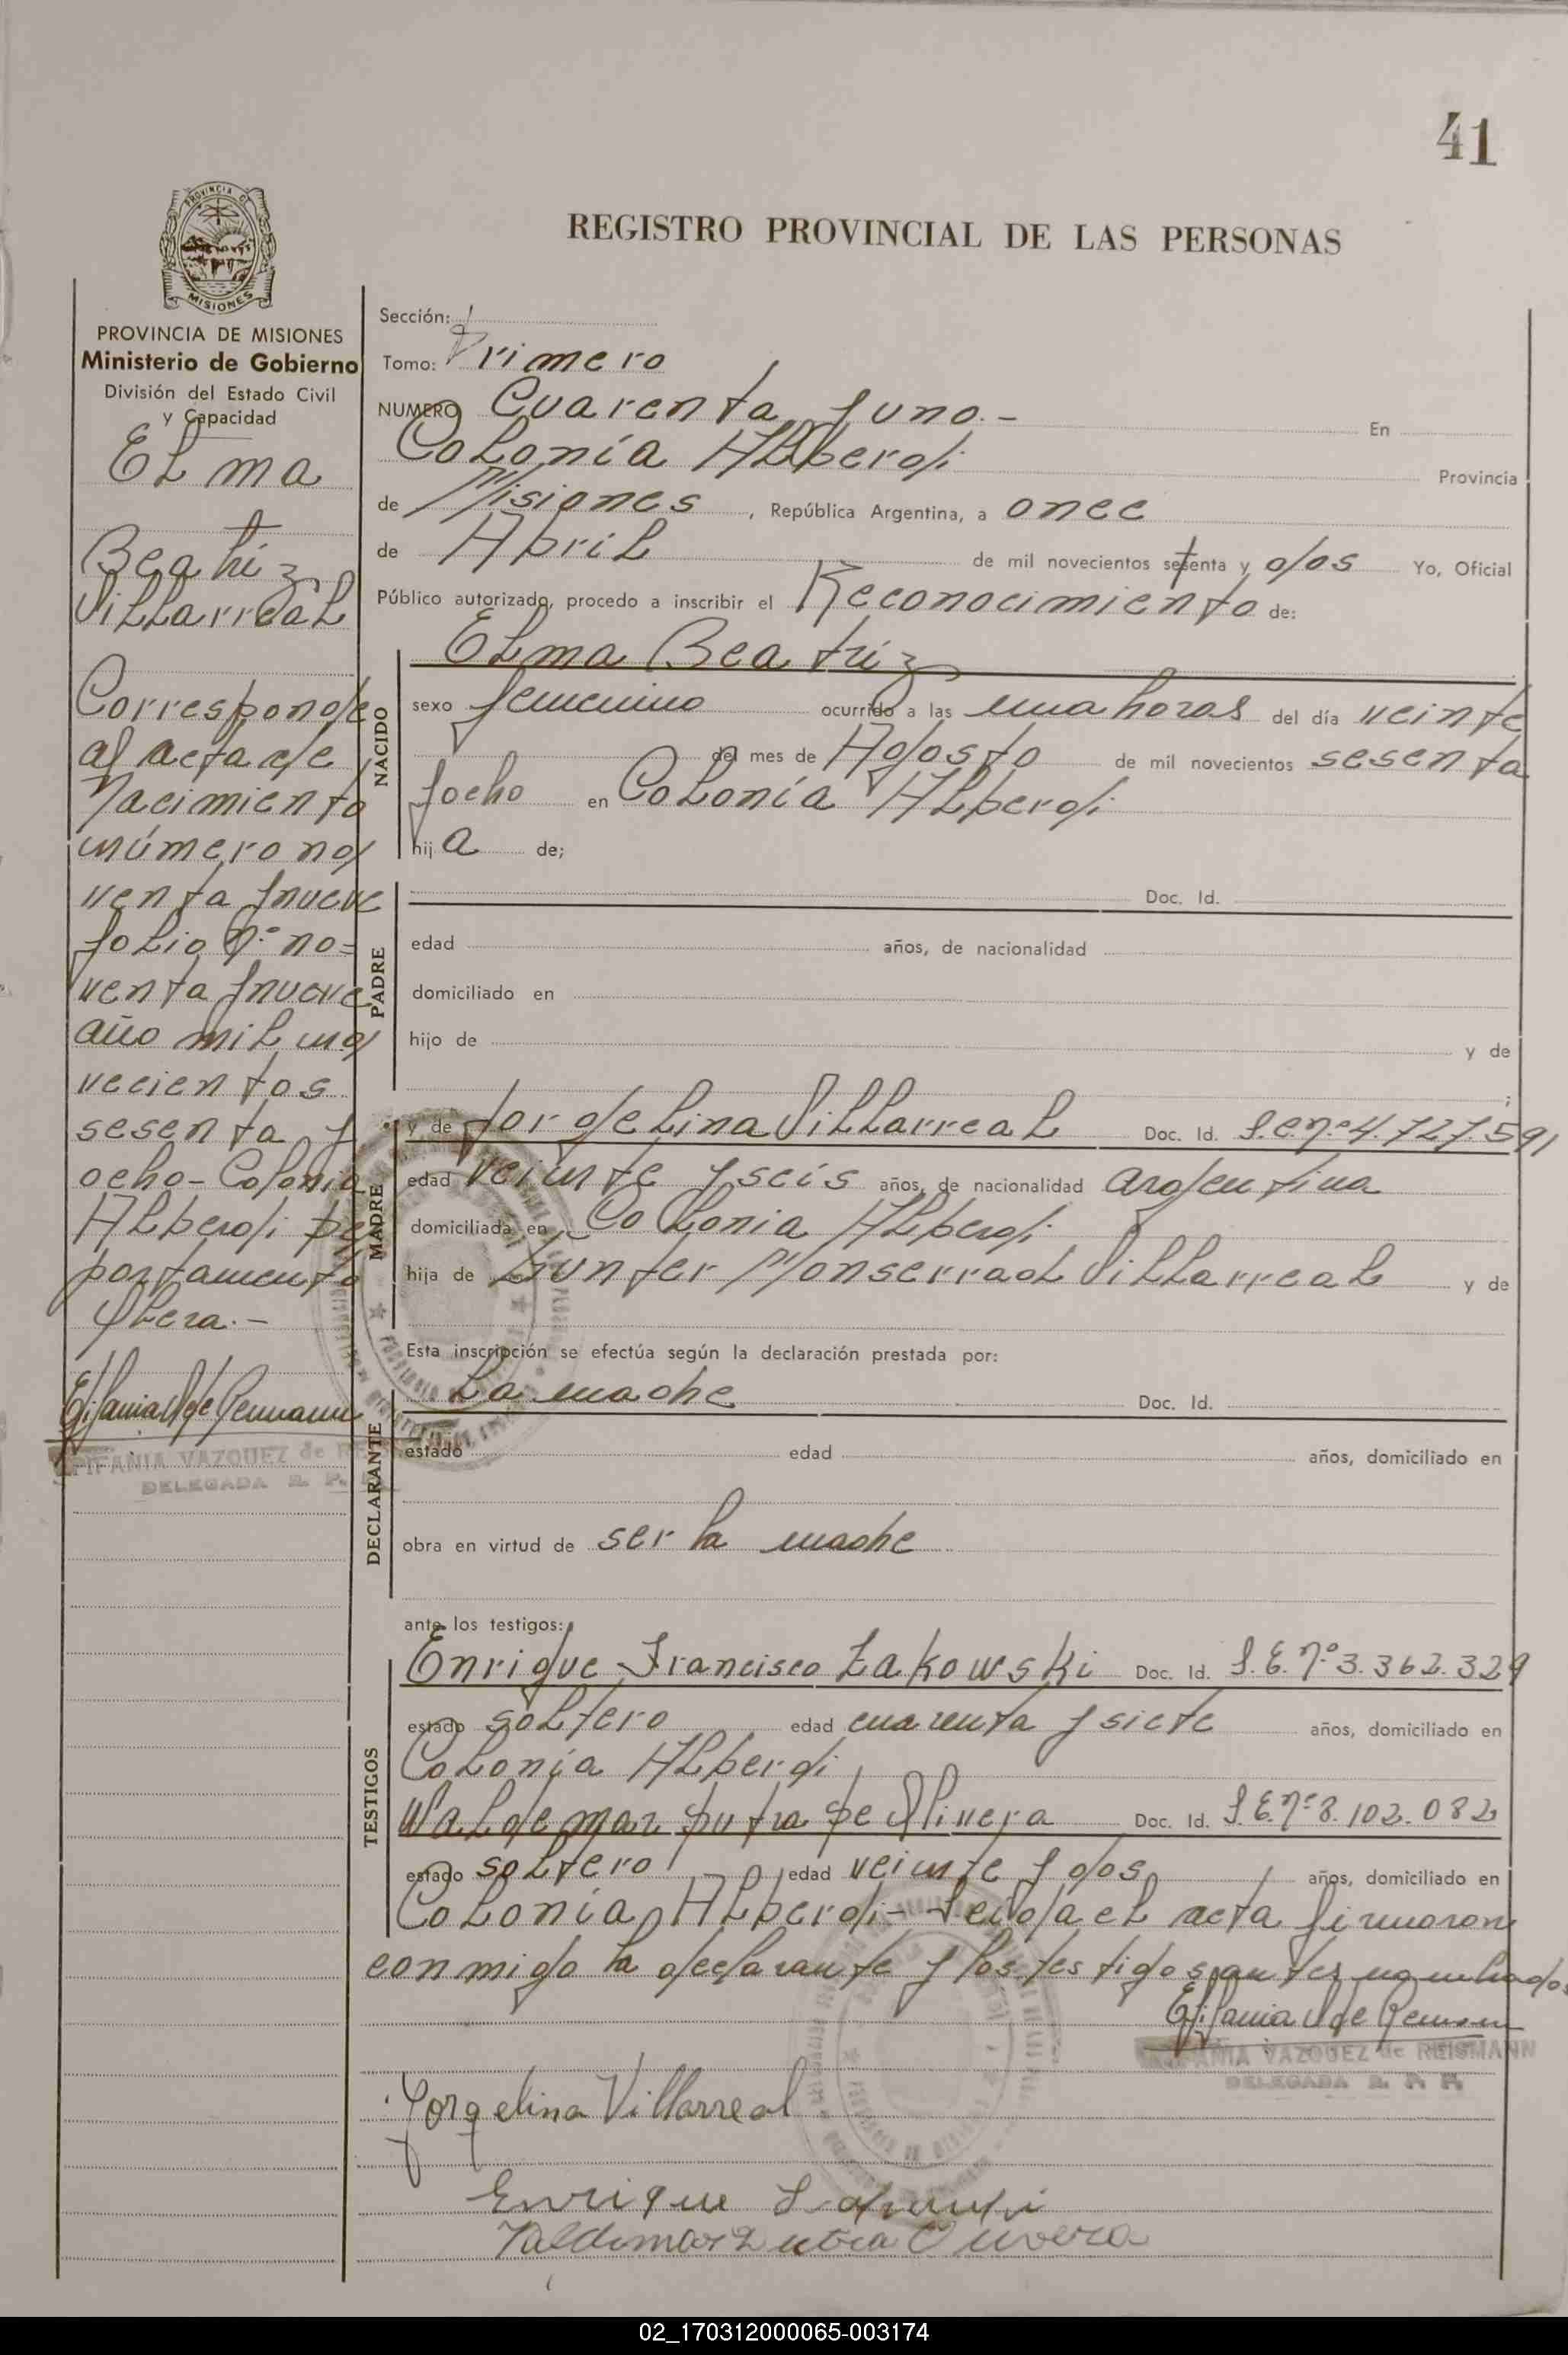 41
REGISTRO PROVINCIAL DE LAS PERSONAS
PROVINCIA DE MISIONES
Ministerio de Gobierno
División del Estado Civil
y Capacidad
Elma
Beatriz
Villarreal
Corresponde
al acta de
Nacimiento
número no/
venta y nueve
folio Nº no=
venta y nueve
año mil no/
vecientos
sesenta y
ocho - Colonia
Alberdi De
partamento
Obera.-
EPIFANIA VAZQUEZ de
DELEGADA R. P.
Sección:
Tomo: Primero
NUMERO Cuarenta y uno.- En
Colonia Alberdi Provincia
de Misiones, República Argentina, a once
de Abril de mil novecientos setenta y dos Yo, Oficial
Público autorizado, procedo a inscribir el Reconocimiento de:
NACIDO
Elma Beatriz
sexo femenino ocurrido a las una horas del día veinte
del mes de Agosto de mil novecientos sesenta
y ocho en Colonia Alberdi
hij a de;
PADRE
Doc. Id.
edad años, de nacionalidad
domiciliado en
hijo de y de
;
MADRE
y de Jorgelina Villarreal Doc. Id. L.C.nº 4.727.591
edad veinte y seis años, de nacionalidad argentina
domiciliada en Colonia Alberdi
hija de Gunter Monserrad Villarreal y de
Esta inscripción se efectúa según la declaración prestada por:
DECLARANTE
La madre Doc. Id.
estado edad años, domiciliado en
obra en virtud de ser la madre
ante los testigos:
TESTIGOS
Enrique Francisco Zakowski Doc. Id. L.E. nº 3.362.329
estado soltero edad cuarenta y siete años, domiciliado en
Colonia Alberdi
Waldemar Dutra De Olivera Doc. Id. L.E. nº 8.102.082
estado soltero edad veinte y dos años, domiciliado en
Colonia Alberdi - Leida el acta firmaron
conmigo la declarante y los testigos antes nombrados
EPIFANIA VAZQUEZ de REISMANN
DELEGADA R. P. P.
Yorgelina Villarreal
Enrique
Valdemar Dutra Olivera
02_170312000065-003174